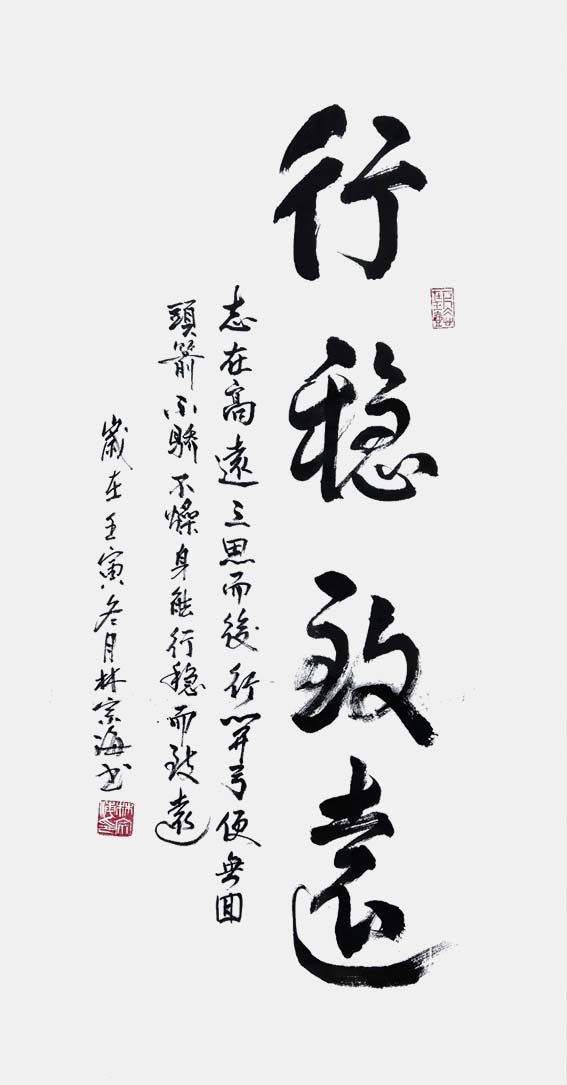 行稳致遠
志在高遠三思而後行開弓便無回
頭箭不驕不燥身能行稳而致遠
歲在壬寅冬月林宗海书